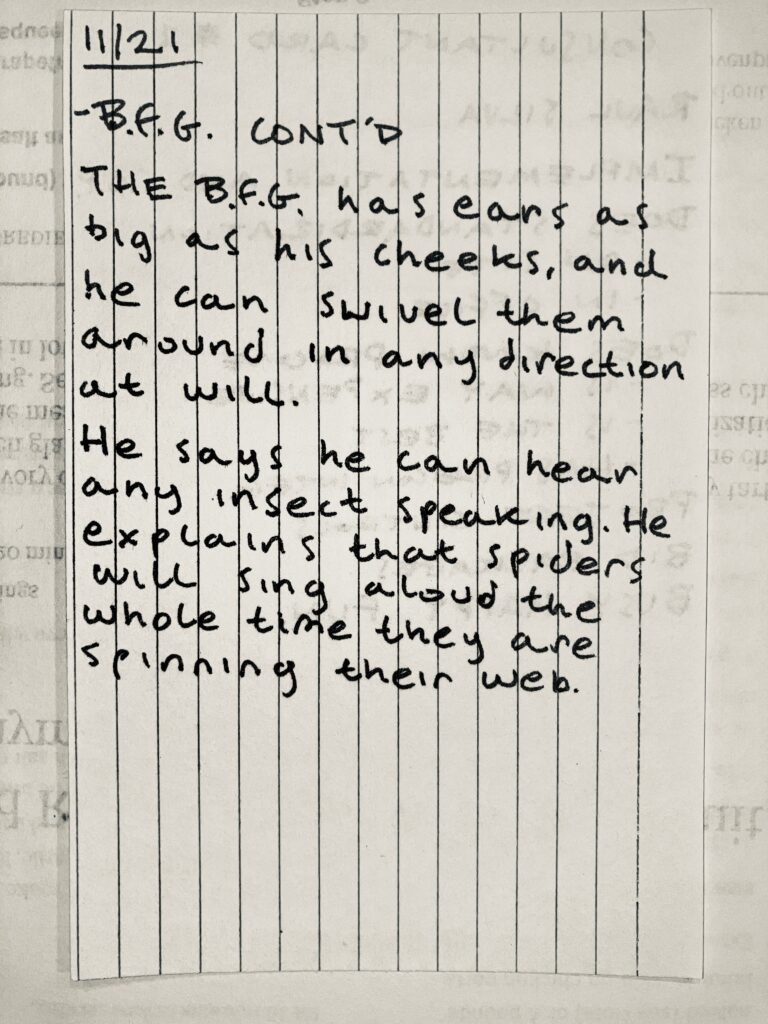 11/21
-B.F.G. CONT'D
THE B.F.G. has ears as
big as his cheeks, and
he can swivel them
around in any direction
at will.
He says he can hear
any insect speaking. He
explains that spiders
will sing aloud the
whole time they are
spinning their web.